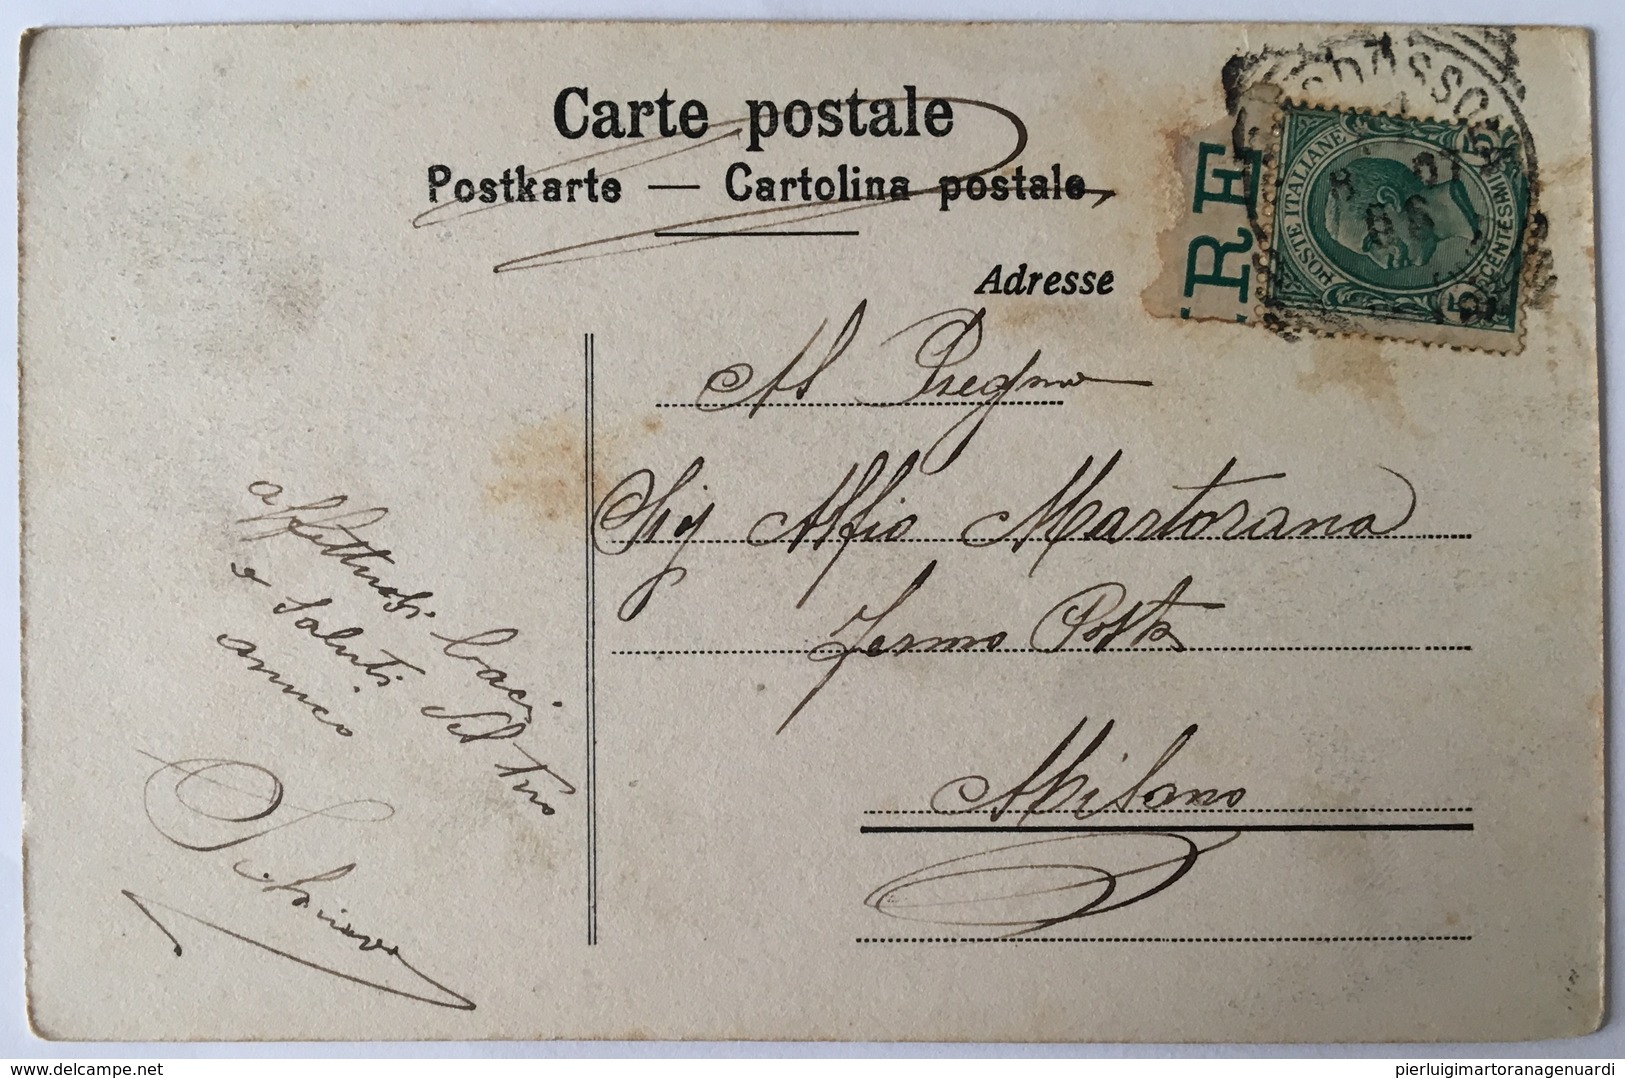 Carte postale
Postkarte — Cartolina postale
Adresse
POSTE ITALIANE
5 CENTESIMI 5
RE
Al Pregmo
Sig Alfio Martorana
Fermo Posta
Milano
affettuosi baci
e saluti del tuo
amico
Schiavo
delcampe.net
pierluigimartoranagenuardi